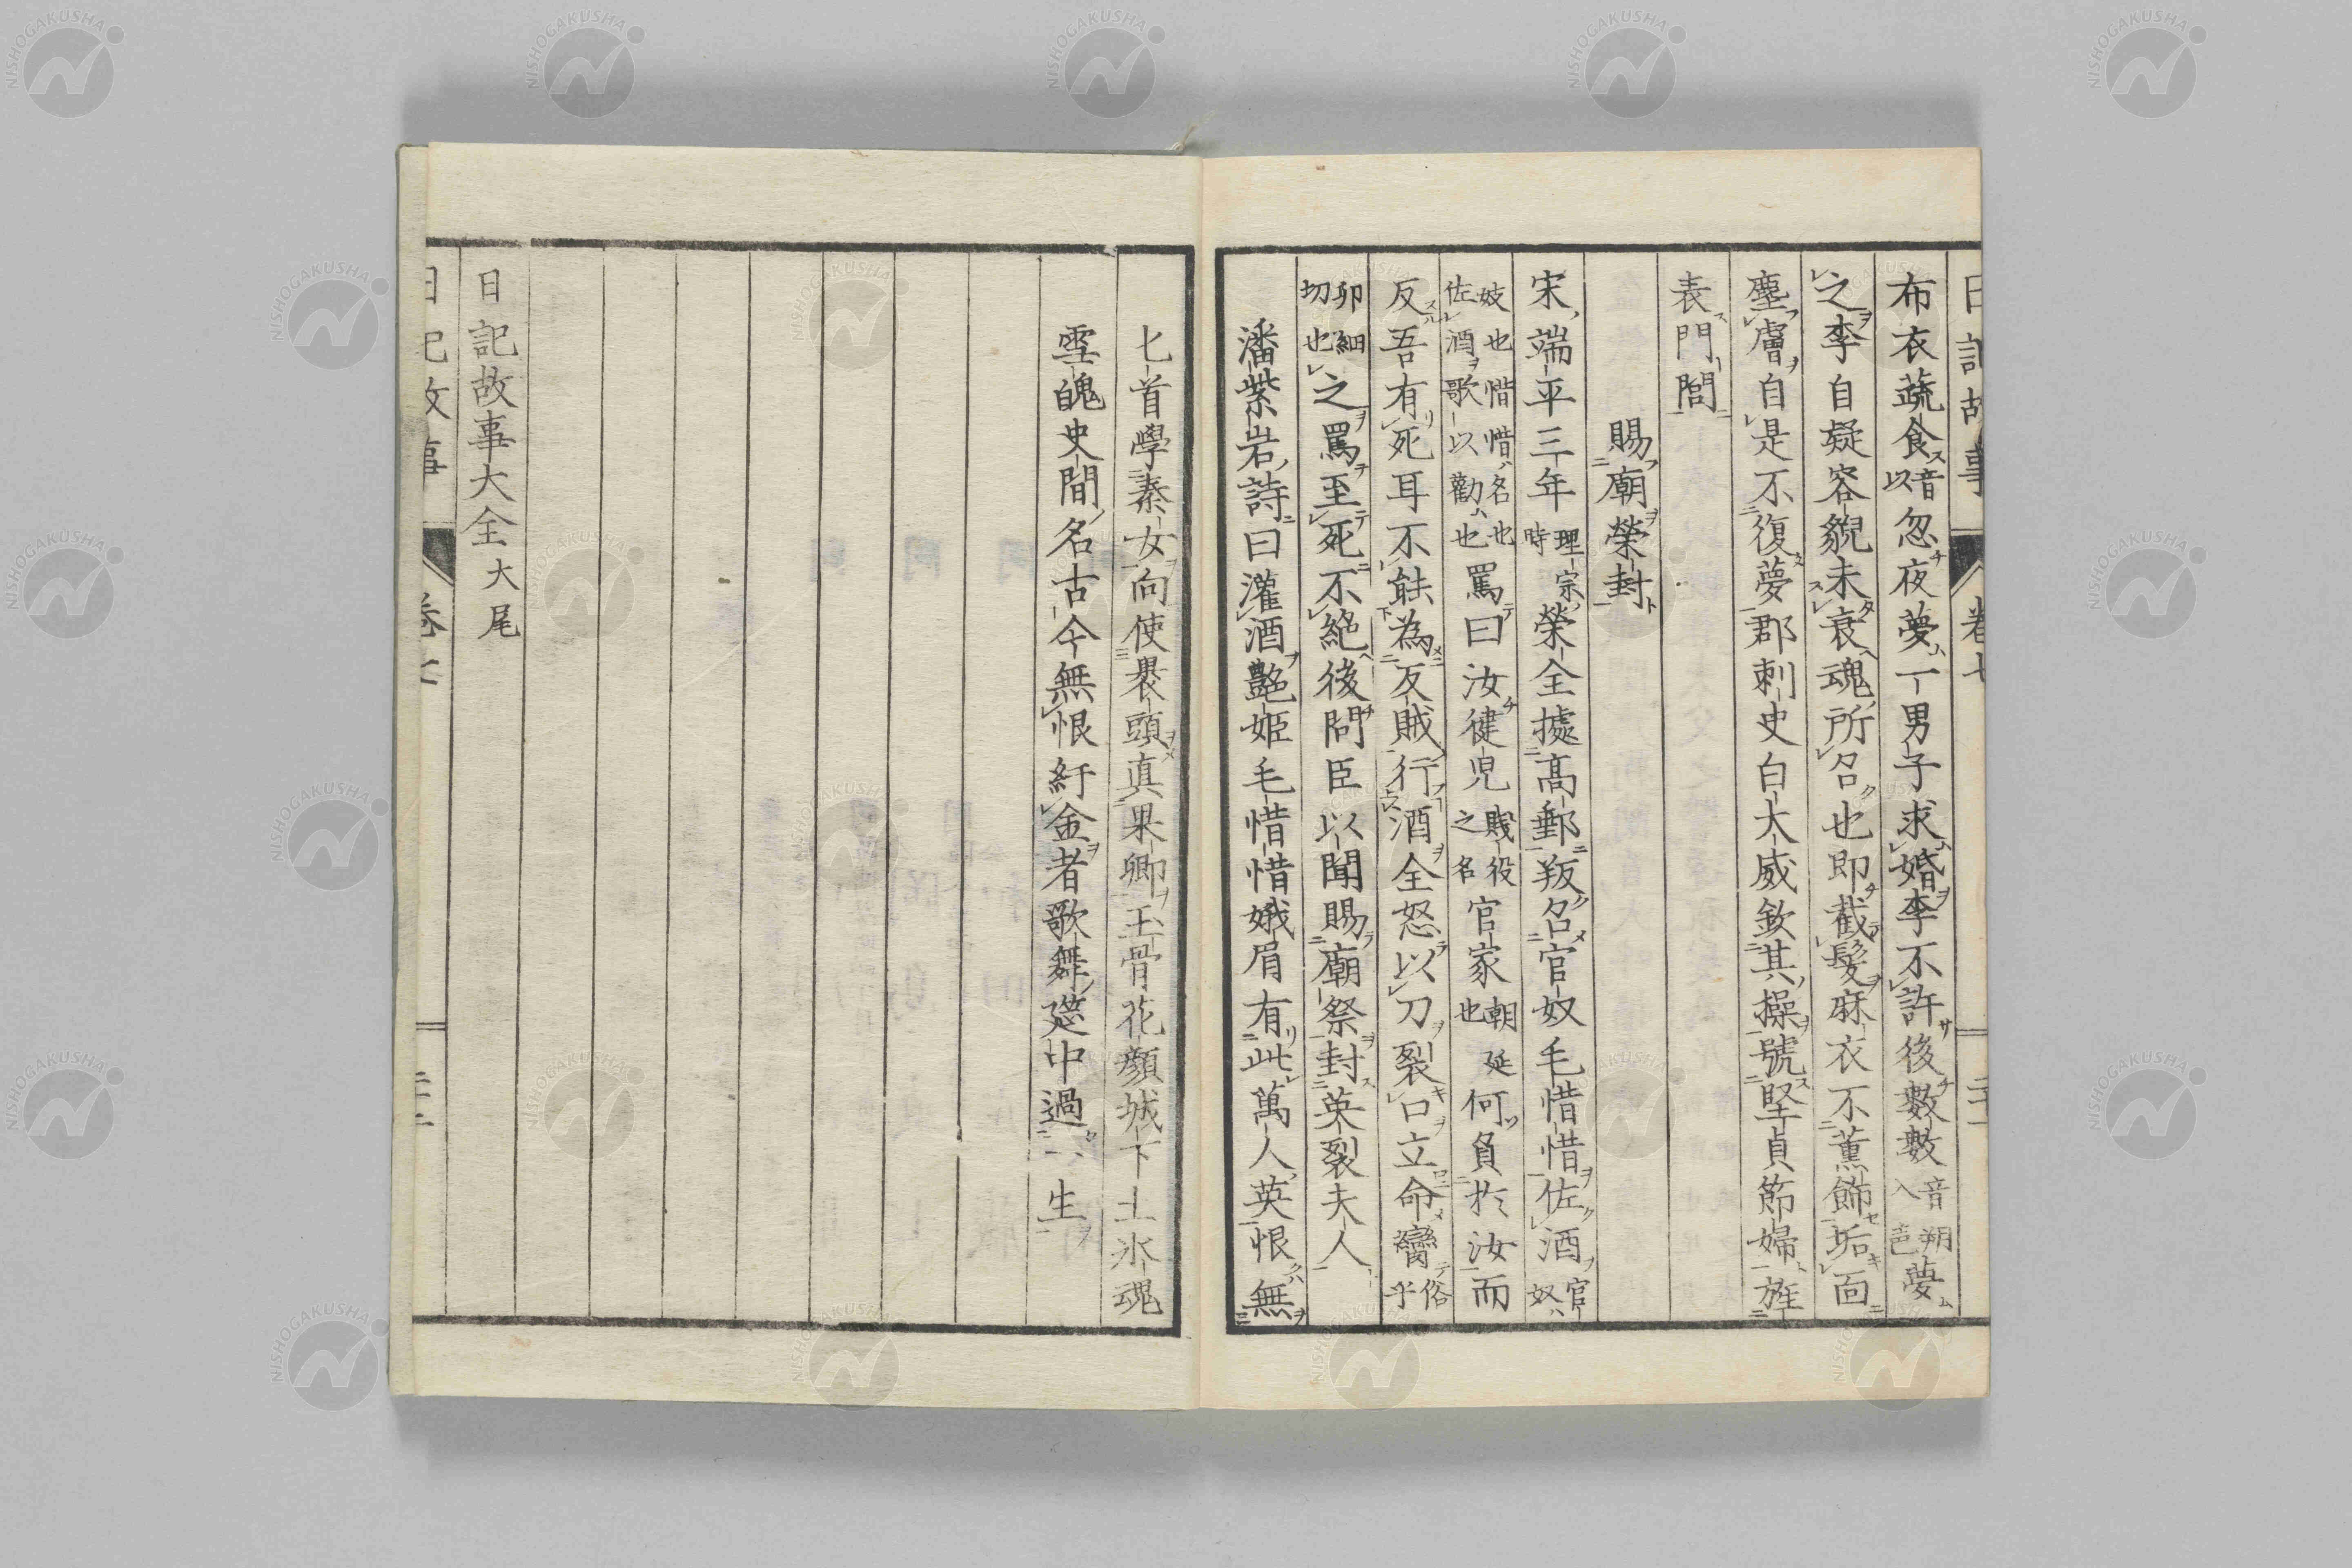 日記故事 卷七 二十一
布衣蔬食音以忽夜夢一男子求婚李不許後數數音朔入色夢
之李自疑容貌未衰魂所名也即截髮麻衣不薫飾垢面
塵膚自是不復夢郡刺史白大威欽其操號堅貞節婦旌
表門閭
賜廟榮封
宋端平三年理宗時榮全據高郵叛名官奴毛惜惜佐酒官奴ハ
妓也惜惜ハ名也佐酒歌以勸ハ也罵曰汝健児賤役之名官家朝廷也何負於汝而
反吾有死耳不能為反賊行酒全怒以刀裂口立命臠俗乎
卵切細也之罵至死不絕後閫臣以聞賜廟祭封英裂夫人
潘紫岩詩曰灌酒艷姬毛惜惜娥眉有此萬人英恨無
匕首學秦女向使褁頭真果卿玉骨花顏城下土氷魂
雪魄史間名古今無恨紆金者歌舞筵中過一生
日記故事大全大尾
日記故事 卷七